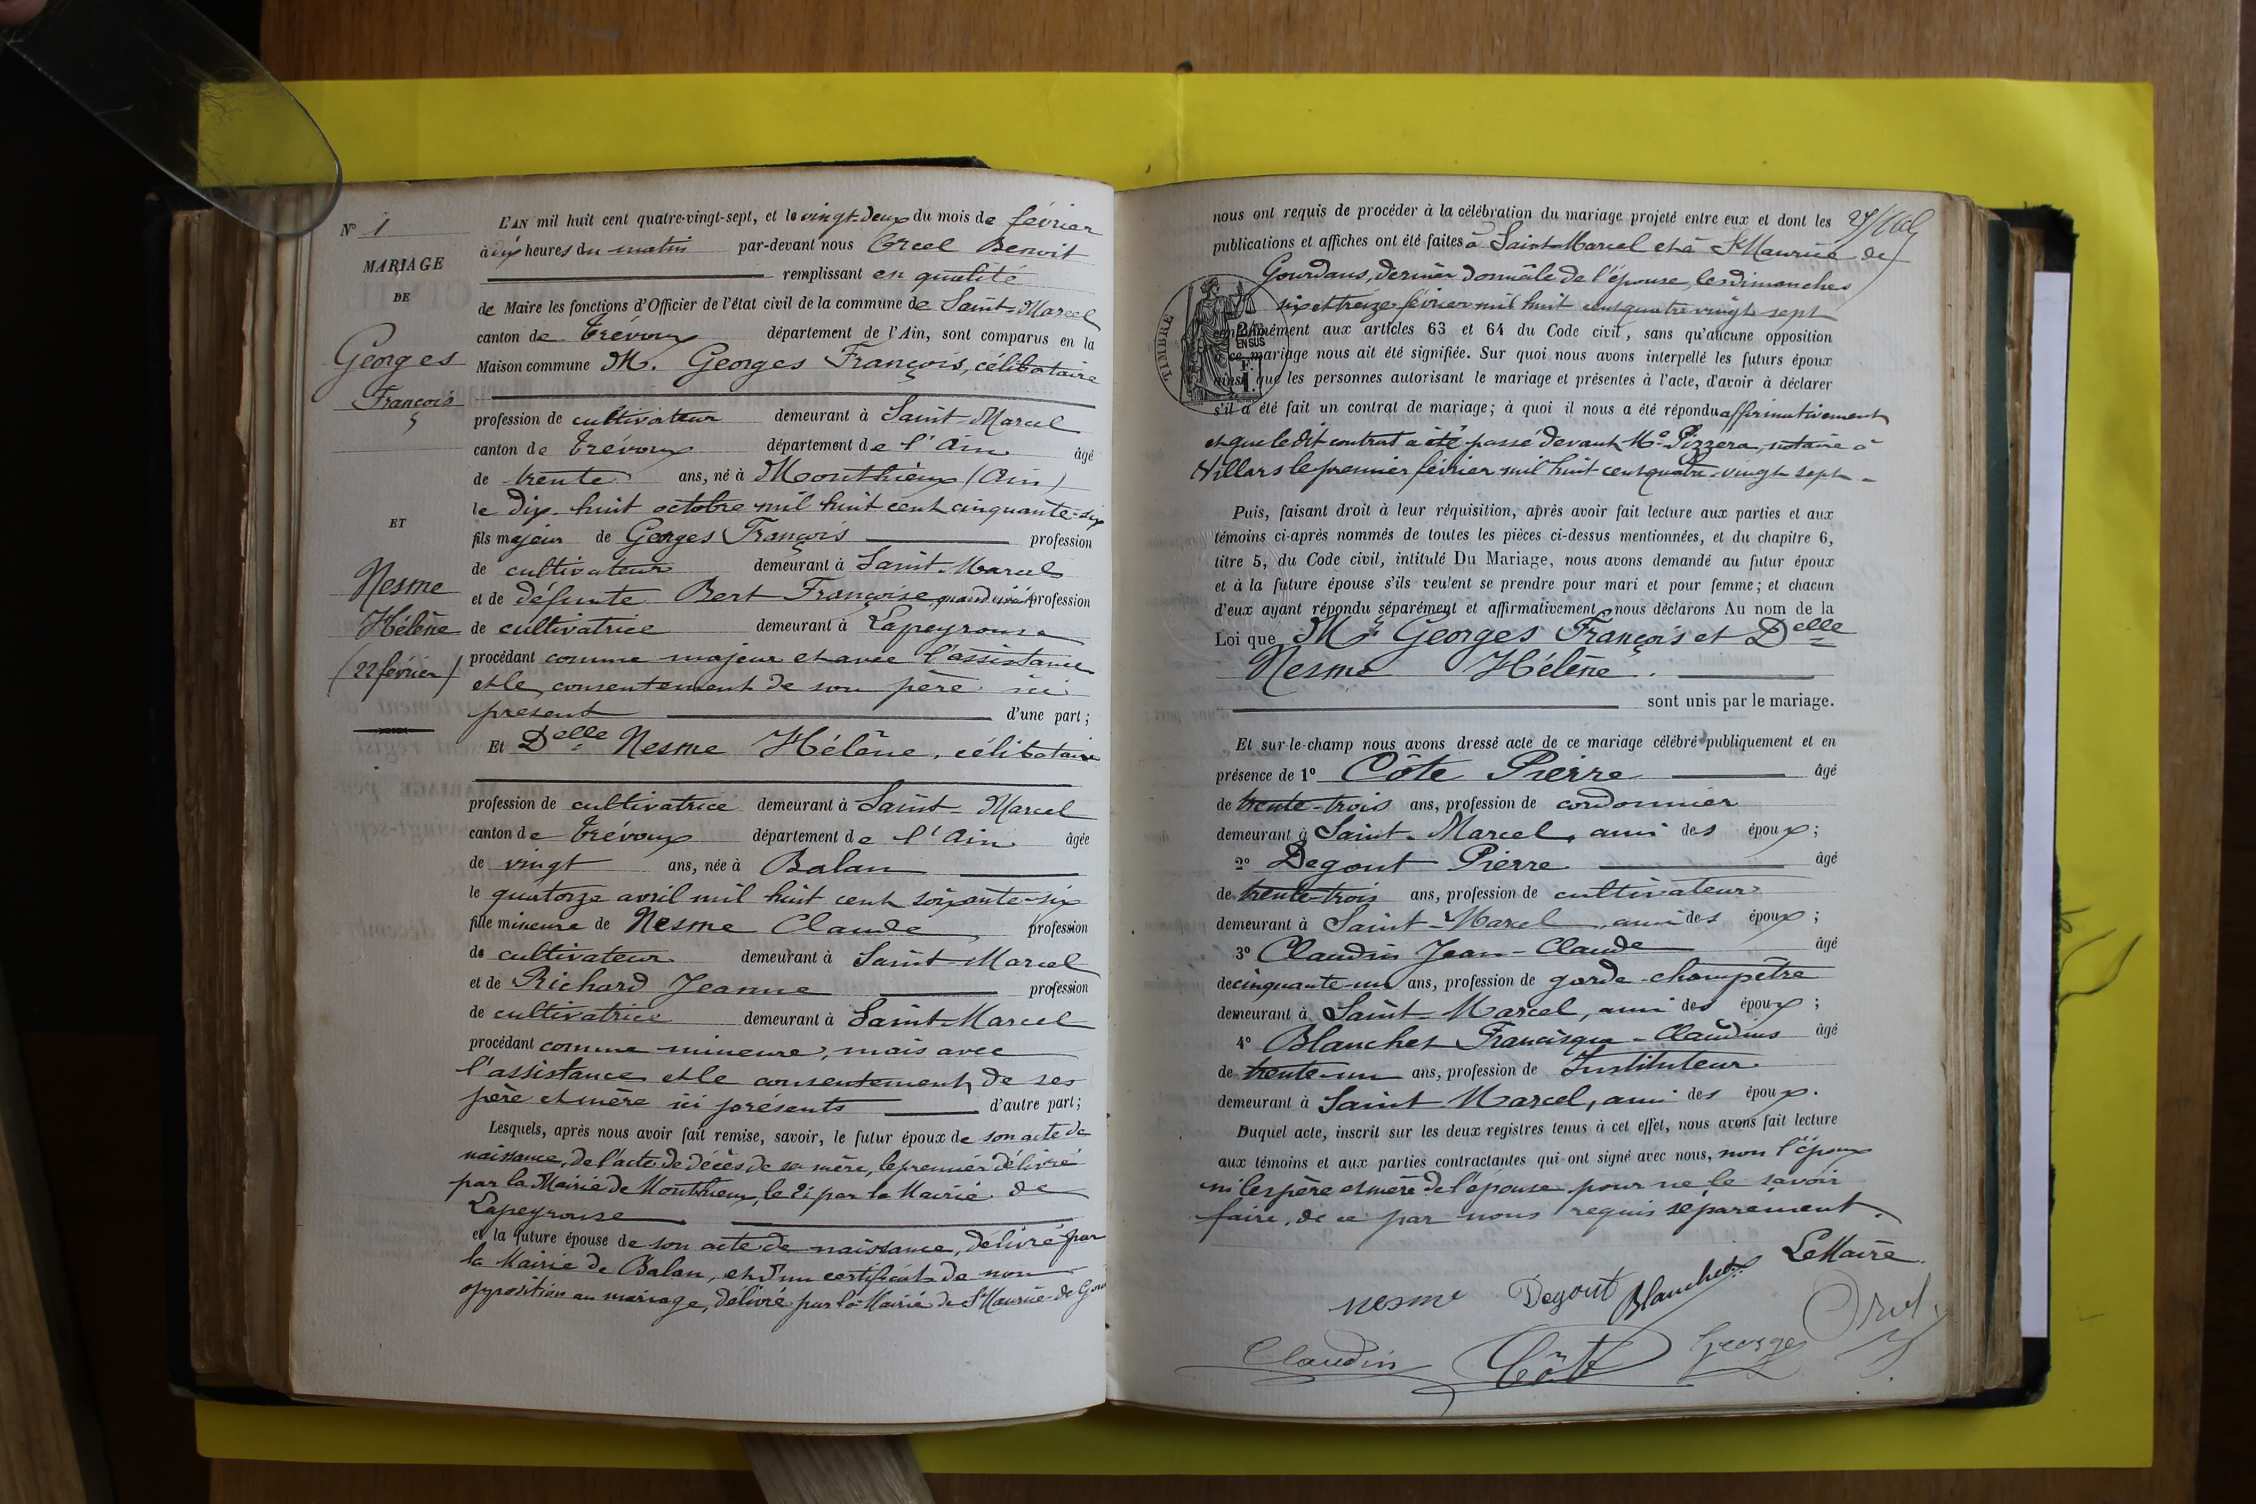 N° 1
MARIAGE
DE
Georges
François
ET
Nesme
Hélène
(22 février)
L'AN mil huit cent quatre-vingt-sept, et le vingt-deux du mois de février
à six heures du matin par-devant nous Orcel Benoit
remplissant en qualité
de Maire les fonctions d'Officier de l'état civil de la commune de Saint-Marcel
canton de Trévoux département de l'Ain, sont comparus en la
Maison commune M. Georges François, célibataire
profession de cultivateur demeurant à Saint-Marcel
canton de Trévoux département de l'Ain âgé
de trente ans, né à Monthieux (Ain)
le dix-huit octobre mil huit cent cinquante-six
fils majeur de Georges François profession
de cultivateur demeurant à Saint-Marcel
et de défunte Bert Françoise quand vivait profession
de cultivatrice demeurant à Lapeyrouse
procédant comme majeur et avec l'assistance
et le consentement de son père ici
présent d'une part ;
Et Delle Nesme Hélène, célibataire
profession de cultivatrice demeurant à Saint-Marcel
canton de Trévoux département de l'Ain âgée
de vingt ans, née à Balan
le quatorze avril mil huit cent soixante-six
fille mineure de Nesme Claude profession
de cultivateur demeurant à Saint-Marcel
et de Richard Jeanne profession
de cultivatrice demeurant à Saint-Marcel
procédant comme mineure, mais avec
l'assistance et le consentement de ses
père et mère ici présents d'autre part ;
Lesquels, après nous avoir fait remise, savoir, le futur époux de son acte de
naissance, de l'acte de décès de sa mère, le premier délivré
par la Mairie de Monthieux, le 2e par la Mairie de
Lapeyrouse
et la future épouse de son acte de naissance, délivré par
la Mairie de Balan, et d'un certificat de non
opposition au mariage, délivré par la Mairie de St Maurice de Gour
nous ont requis de procéder à la célébration du mariage projeté entre eux et dont les
publications et affiches ont été faites à Saint-Marcel et à St Maurice de
Gourdans, dernier domicile de l'épouse, les dimanches
six et treize février mil huit cent quatre vingt sept
conformément aux articles 63 et 64 du Code civil, sans qu'aucune opposition
à ce mariage nous ait été signifiée. Sur quoi nous avons interpellé les futurs époux
ainsi que les personnes autorisant le mariage et présentes à l'acte, d'avoir à déclarer
s'il a été fait un contrat de mariage ; à quoi il nous a été répondu affirmativement
et que le dit contrat a été passé devant Me Pizzera, notaire à
Villars le premier février mil huit cent quatre-vingt sept
TIMBRE
EN SUS
Puis, faisant droit à leur réquisition, après avoir fait lecture aux parties et aux
témoins ci-après nommés de toutes les pièces ci-dessus mentionnées, et du chapitre 6,
titre 5, du Code civil, intitulé Du Mariage, nous avons demandé au futur époux
et à la future épouse s'ils veulent se prendre pour mari et pour femme ; et chacun
d'eux ayant répondu séparément et affirmativement, nous déclarons Au nom de la
Loi que Mr Georges François et Delle
Nesme Hélène.
sont unis par le mariage.
Et sur-le-champ nous avons dressé acte de ce mariage célébré publiquement et en
présence de 1° Côte Pierre âgé
de trente-trois ans, profession de cordonnier
demeurant à Saint-Marcel, ami des époux ;
2° Degout Pierre âgé
de trente-trois ans, profession de cultivateur
demeurant à Saint-Marcel, ami des époux ;
3° Claudin Jean-Claude âgé
de cinquante-un ans, profession de garde-champêtre
demeurant à Saint-Marcel, ami des époux ;
4° Blanchet Francisque-Claudius âgé
de trente-un ans, profession de Instituteur
demeurant à Saint-Marcel, ami des époux.
Duquel acte, inscrit sur les deux registres tenus à cet effet, nous avons fait lecture
aux témoins et aux parties contractantes qui ont signé avec nous, non l'époux
ni les père et mère de l'épouse pour ne le savoir
faire, de ce par nous requis séparément.
Le Maire
Nesme Degout Blanchet
Claudin Côte Georges Orcel